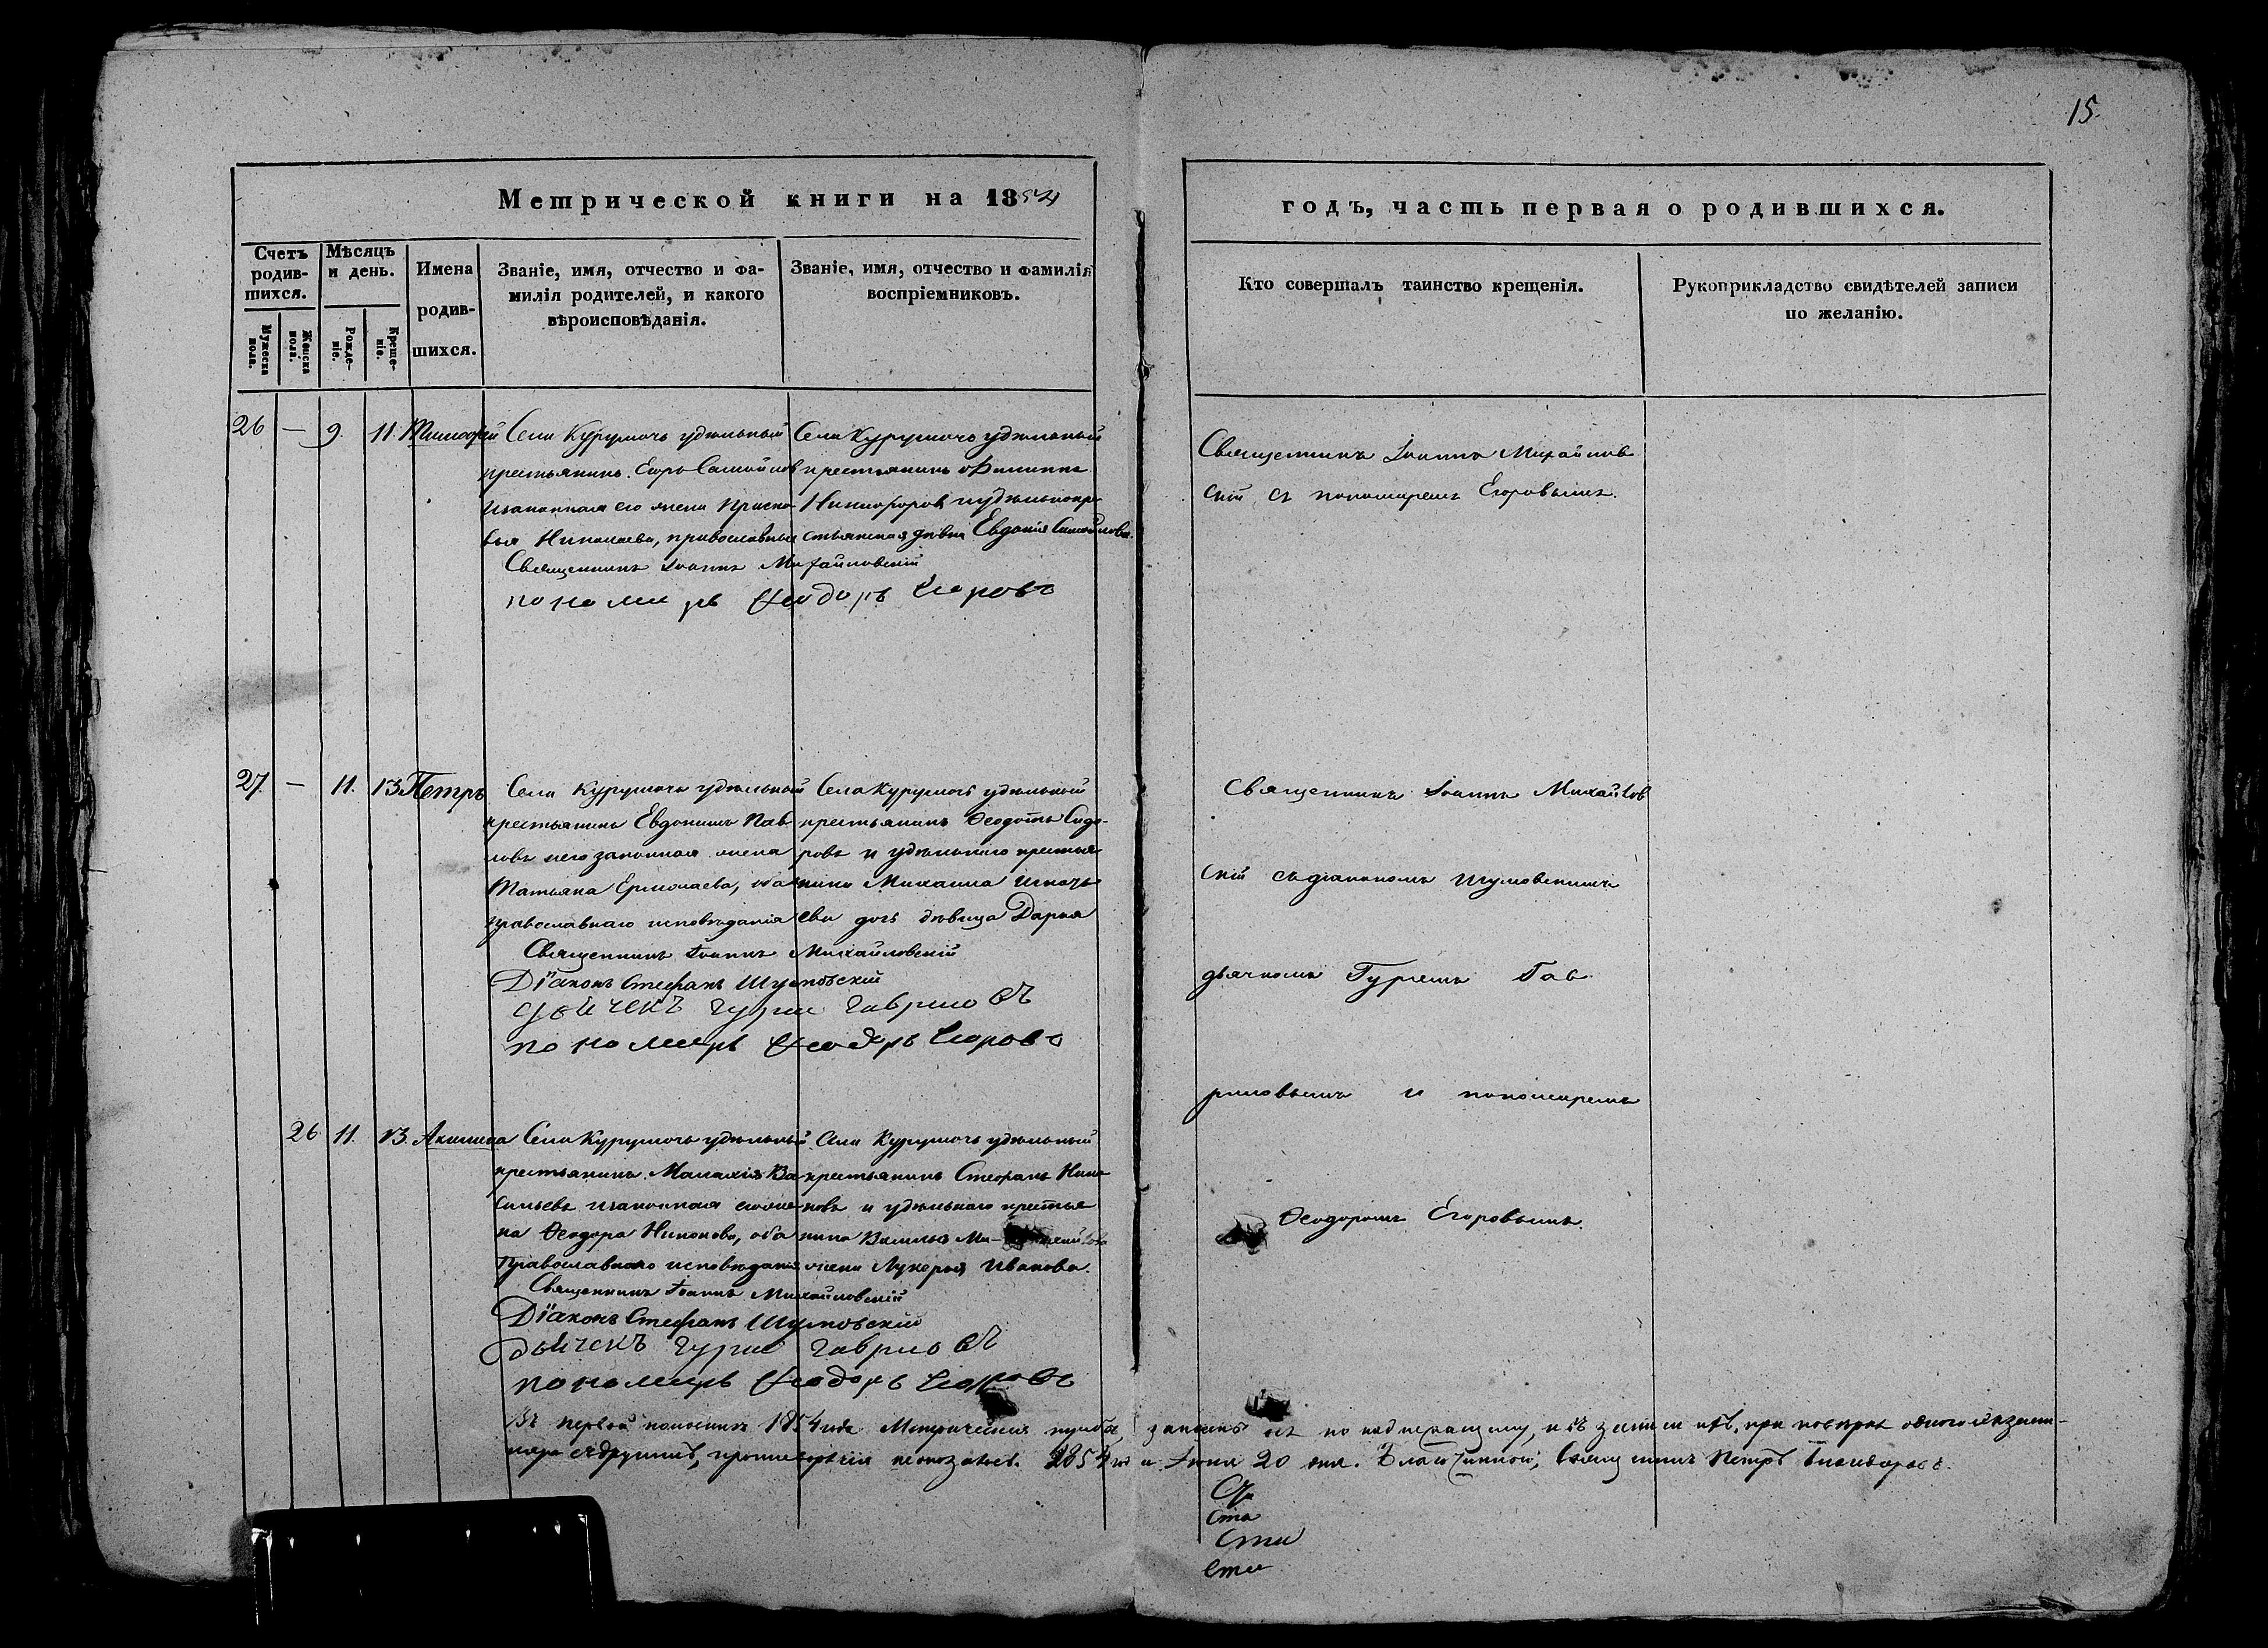 15.
Метрической книги на 1854
годъ, часть первая о родившихся.
Счетъ родив-
шихся.
Мужеска пола.
Женска пола.
Мѣсяцъ и день.
Рожде-
ніе.
Креще-
ніе.
Имена
родив-
шихся.
Званіе, имя, отчество и фа-
милія родителей, и какого
вѣроисповѣданія.
Званіе, имя, отчество и фамилія
воспріемниковъ.
Кто совершалъ таинство крещенія.
Рукоприкладство свидѣтелей записи
по желанію.
26 — 9. 11. Тимофей
Села Курумочь удѣльный
крестьянинъ Егоръ Самойлов
и законная его жена Праско-
вья Николаева, православные
Села Курумочь удѣльный
крестьянинъ Филиппъ
Никифоров и удѣльнокре-
стьянская дѣвка Евдокія Самойлова.
Священникъ Іоаннъ Михайловскій
пономарь Феодоръ Егоровъ
Священникъ Іоаннъ Михайлов
скій съ пономаремъ Егоровымъ.
27. — 11. 13 Петръ
Села Курумочь удѣльный
крестьянинъ Евдокимъ Пав-
ловъ и его законная жена
Татьяна Ермолаева, оба
православнаго исповѣданія
Села Курумочь удѣльный
крестьянинъ Ѳеодотъ Сидо-
ровъ и удѣльнаго крестья-
нина Михаила Игнать
ева дочь дѣвица Дарья
Священникъ Іоаннъ Михайловскій
Діаконъ Стефанъ Шумовскій
дьячекъ Гурие Гавриловъ
пономарь Феодоръ Егоровъ
Священникъ Іоаннъ Михайлов
скій съ діакономъ Шумовскимъ
дьячкомъ Гуріемъ Гав-
риловымъ и пономаремъ
Ѳеодоромъ Егоровымъ.
26 11. 13. Акилина
Села Курумочь удѣльный
крестьянинъ Малахія Ва-
сильевъ и законная его же-
на Ѳеодора Никонова, оба
православнаго исповѣданія
Села Курумочь удѣльный
крестьянинъ Стефанъ Нико
новъ и удѣльнаго крестья
нина Василья Ми-
жена Лукерья Иванова.
Священникъ Іоаннъ Михайловскій
Діаконъ Стефанъ Шумовскій
дьячекъ Гурие Гавриловъ
пономарь Феодоръ Егоровъ
Въ первой половинѣ 1854 года Метрическая по надлежащему, при повѣркѣ одного экзем-
пляра съ другимъ, противорѣчія не оказалось. 1854 года Іюля 20 дня. Благочинной, Священникъ Петръ
Ста
Сти
Сти